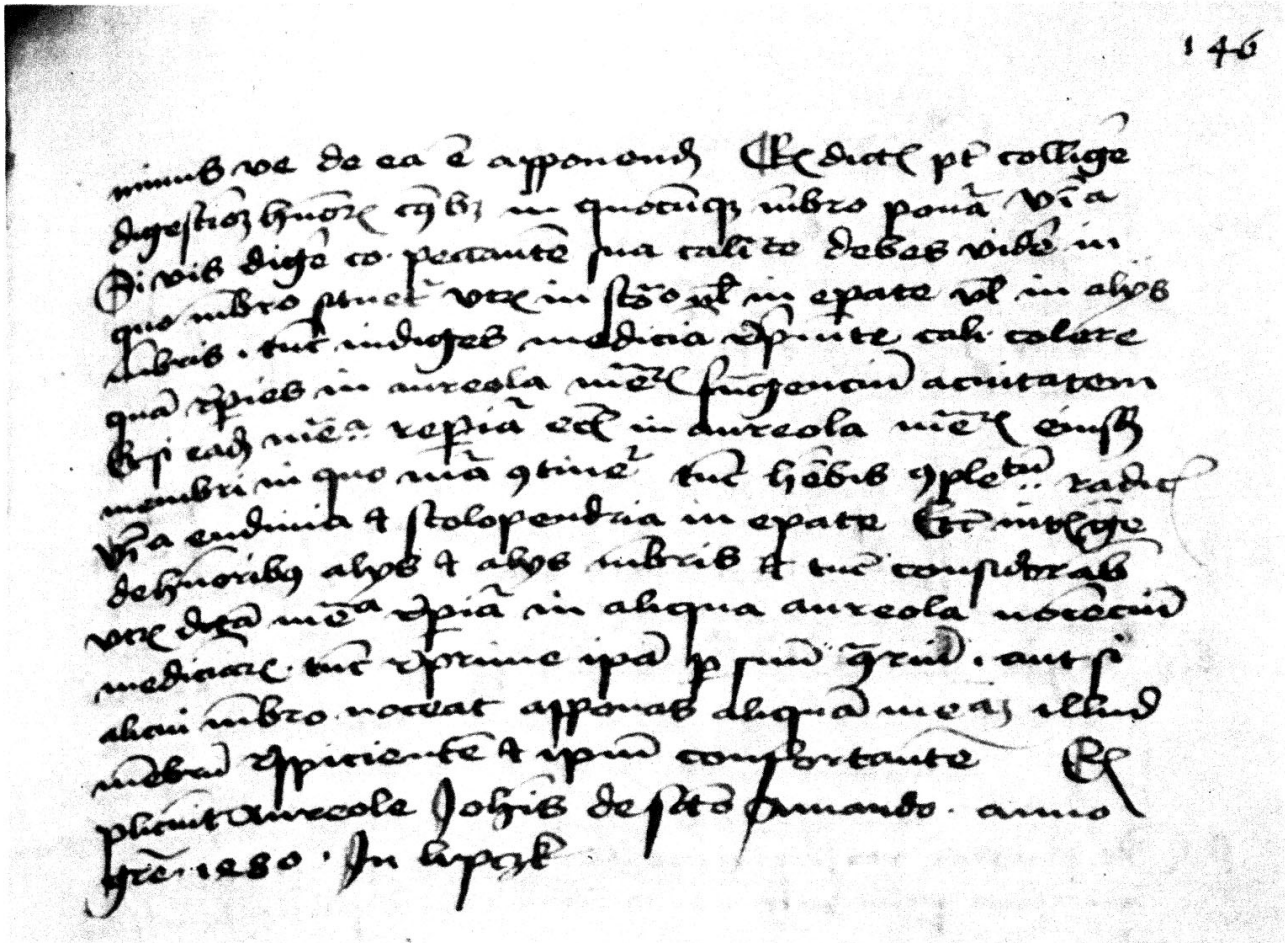 146
minus ve de ea ē apponend Ex dict pt collige
digestioz humor in quocunqz mbro ponā
Si vis digē co. peccantē sua calite debes vidē in
quo mbro situet utrz in sto vl in epate vl in alys
mbris. tūc indiges medicīa rpimte cali. colore
quā rpies in aureola mēz fūgenciū acuitatem
Et si eadz mēa repiā ect in aureola mēz eiusdz
membri in quo mā 9tinet tūc hēbis 9pletū radic
vīa endivia et scolopendria in epate Etc intllige
de humoribus alys et alys mbris et tūc considerab
utrz dcā mēa rpiā in aliqua aureola nocēciū
medicinarz. tūc rprime ipā p suū 9riū. aut si
alicui mbro noceat apponas aliquā meaz illud
mēbrū rspicientē et ipm confortantē Ex
plicuīt Aureole Johīs de scto Amando. anno
grē. 1480. In lipczk